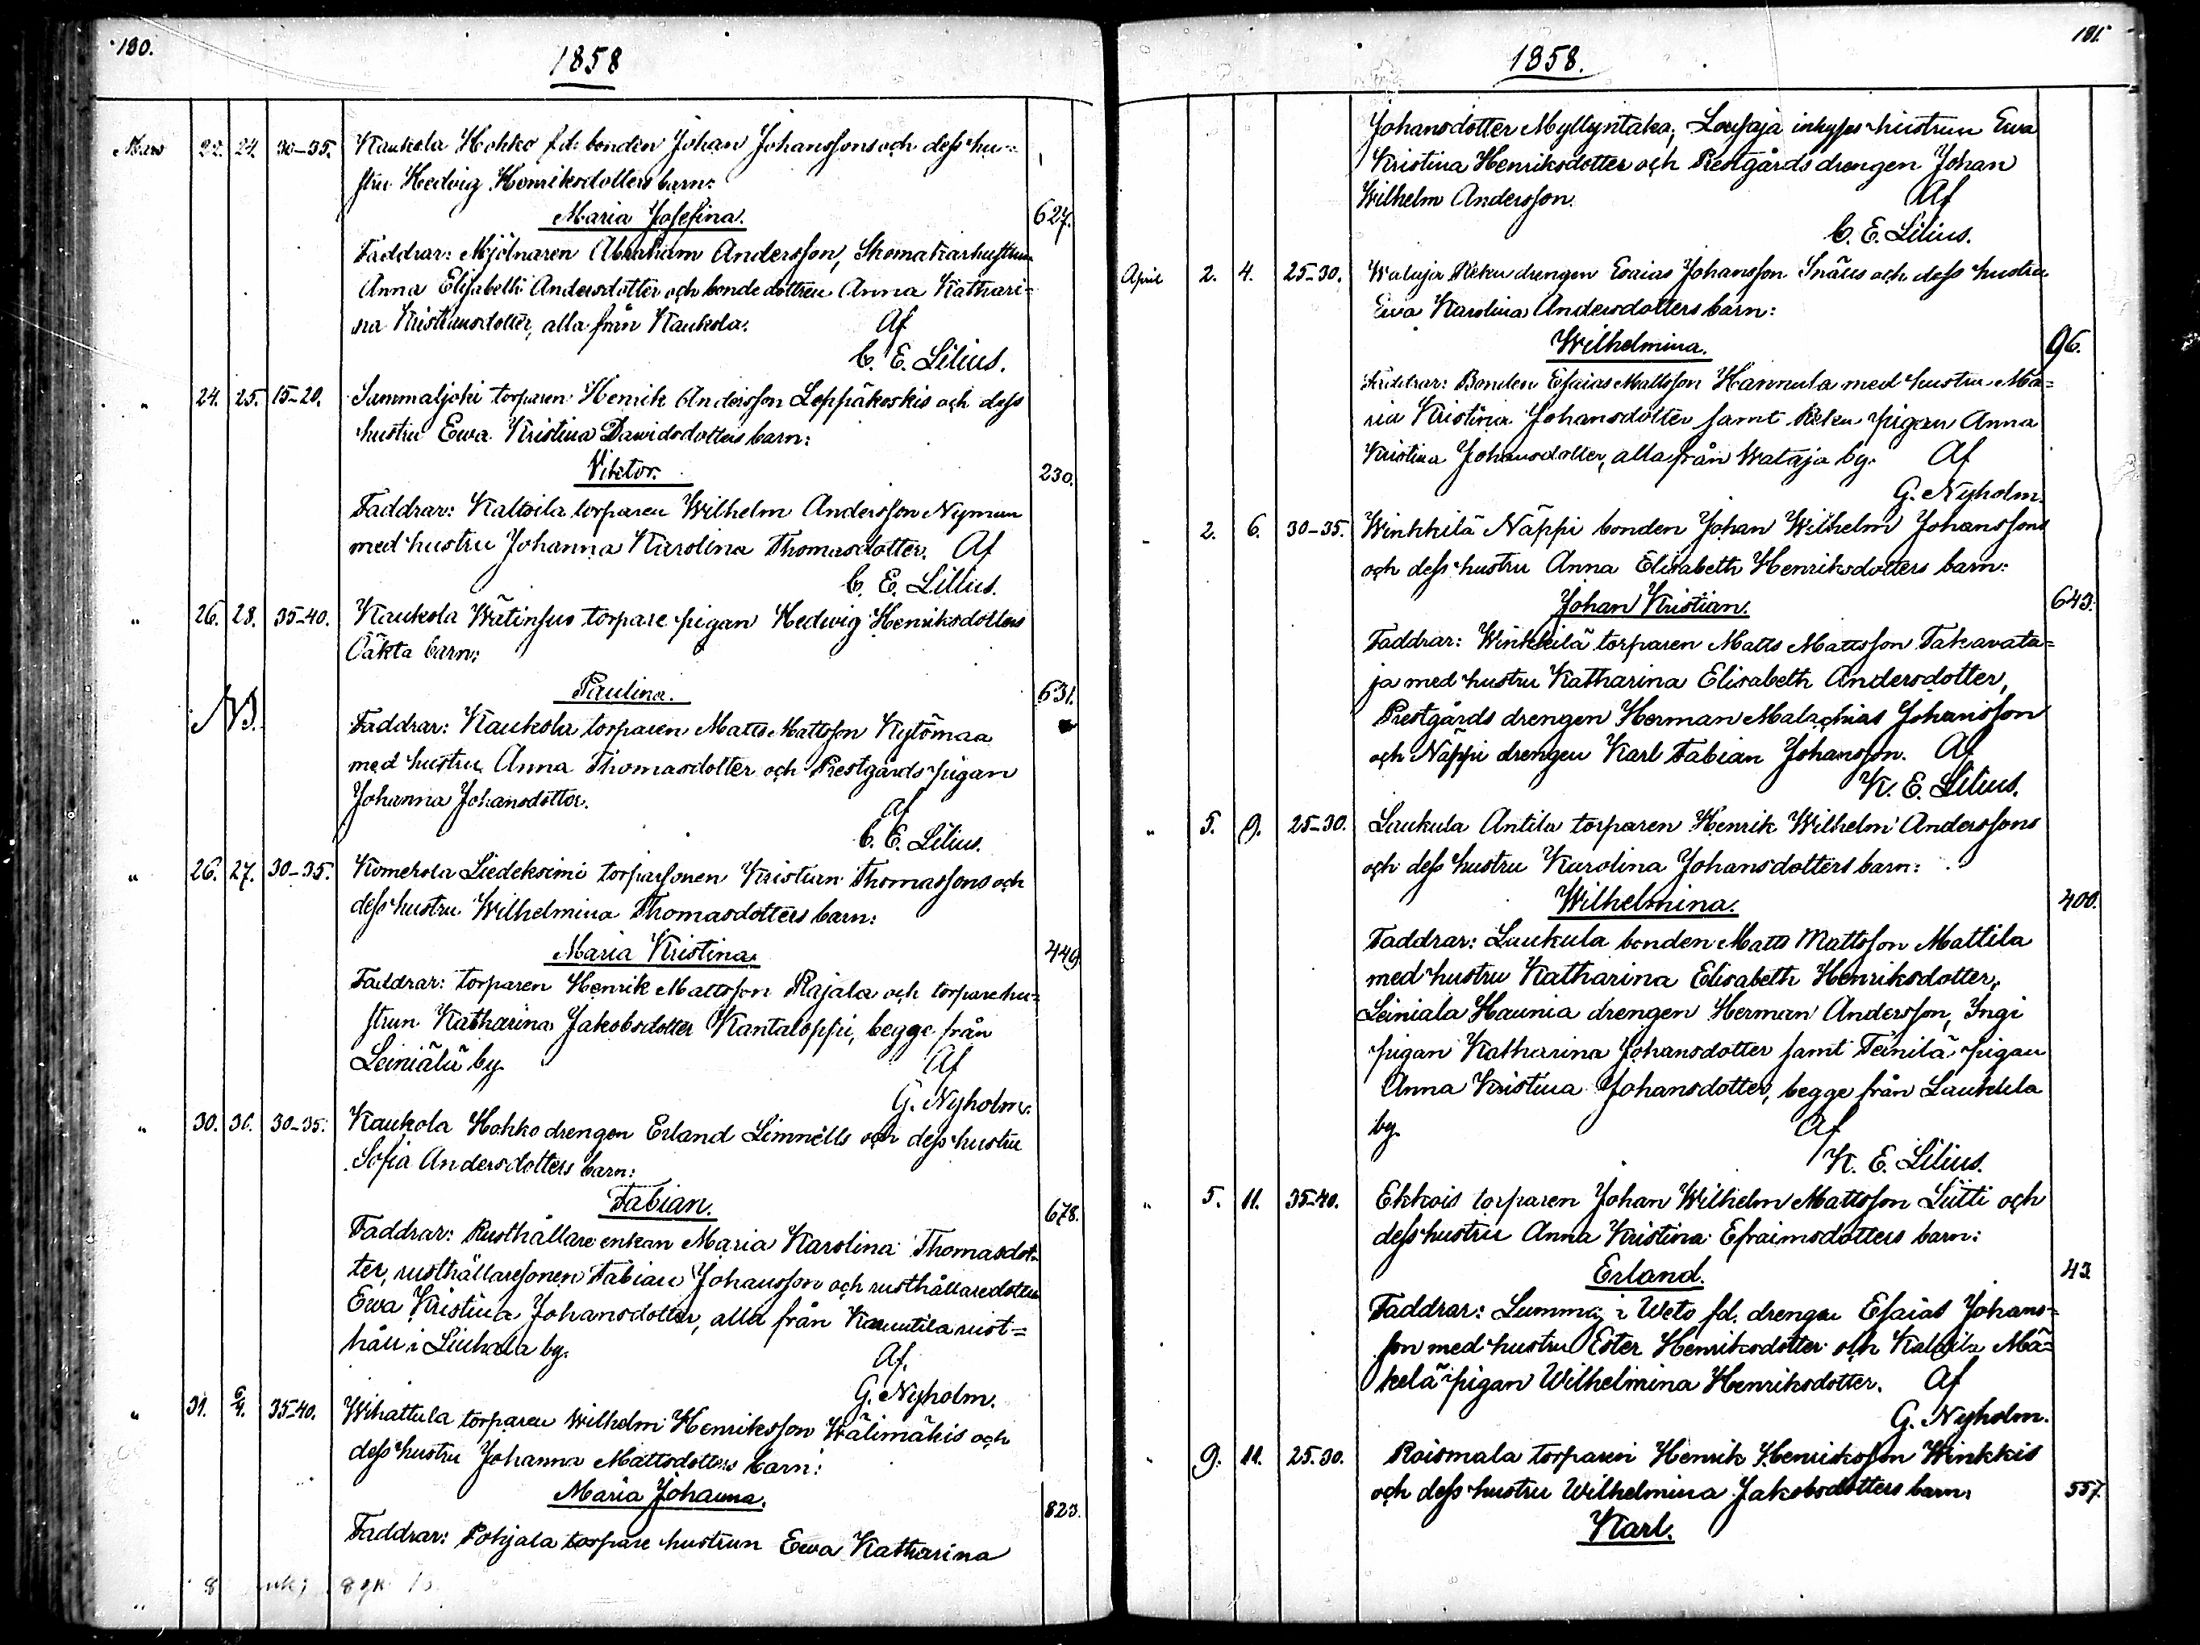 130.
1858
Mars 22. 24. 30-35. Kaukola Hohko f.d. bonden Johan Johanssons och dess hu-
stru Hedvig Henriksdotters barn:
Maria Josefina. 627.
Faddrar: Mjölnaren Abraham Andersson, Skomakarhustrun
Anna Elisabeth Andersdotter och bondedottren Anna Kathari-
na Kristiansdotter, alla från Kaukola. Af
C. E. Lilius.
" 24. 25. 15-20. Sammaljoki torparen Henrik Andersson Leppäkoskis och dess
hustru Ewa Kristina Davidsdotters barn:
Viktor. 230.
Faddrar: Kaltsila torparen Wilhelm Andersson Nyman
med hustru Johanna Karolina Thomasdotter. Af
C. E. Lilius.
" 26. 28. 35-40. Kaukola Wätinsuo torpare pigan Hedwig Henriksdotters
Oäkta barn:
Paulina. 631.
NB.
Faddrar: Kaukola torparen Matts Mattsson Kytömaa
med hustru Anna Thomasdotter och Prestgårds pigan
Johanna Johansdotter. Af
C. E. Lilius.
" 26. 27. 30-35. Komerola Liedeksimi torparsonen Kristian Thomassons och
dess hustru Wilhelmina Thomasdotters barn:
Maria Kristina. 449
Faddrar: torparen Henrik Mattsson Rajala och torparehu-
strun Katharina Jakobsdotter Kantaloppi, begge från
Leiniälä by. Af
G. Nyholm.
" 30. 31. 30-35. Kaukola Hohko drengen Erland Limnells och dess hustru
Sofia Andersdotters barn:
Fabian. 678.
Faddrar: Rusthållare enkan Maria Karolina Thomasdot-
ter, rusthållaresonen Fabian Johansson och rusthållaredottren
Ewa Kristina Johansdotter, alla från Kauutila rust-
håll i Liuhala by. Af.
G. Nyholm.
" 31. 5/4. 35-40. Wihattula torparen Wilhelm Henriksson Wälimäkis och
dess hustru Johanna Mattsdotters barn:
Maria Johanna. 823.
Faddrar: Pohjala torpare hustrun Ewa Katharina
131.
1858.
Johansdotter Myllyntaka, inhyses hustrun Ewa
Kristina Henriksdotter och Prestgårds drengen Johan
Wilhelm Andersson. Af
C. E. Lilius.
April 2. 4. 25-30. Wataja Reku drengen Esaias Johansson Snäus och dess hustru
Ewa Karolina Andersdotters barn:
Wilhelmina. 96.
Faddrar: Bonden Esaias Mattsson Hannula med hustru Ma-
ria Kristina Johansdotter samt Reku pigan Anna
Kristina Johansdotter, alla från Wataja by. Af
G. Nyholm.
" 2. 6. 30-35. Winkkilä Näppi bonden Johan Wilhelm Johanssons
och dess hustru Anna Elisabeth Henriksdotters barn:
Johan Kristian. 643.
Faddrar: Winkkilä torparen Matts Mattsson Takavata-
ja med hustru Katharina Elisabeth Andersdotter,
Prestgårds drengen Herman Malachias Johansson
och Näppi drengen Karl Fabian Johansson. Af
K. E. Lilius.
" 5. 9. 25-30. Laukula Antila torparen Henrik Wilhelm Anderssons
och dess hustru Karolina Johansdotters barn:
Wilhelmina. 400.
Faddrar: Laukula bonden Matts Mattsson Mattila
med hustru Katharina Elisabeth Henriksdotter,
Leiniala Haunia drengen Herman Andersson, Ingi
pigan Katharina Johansdotter samt Teinilä pigan
Anna Kristina Johansdotter, begge från Laukula
by. Af
K. E. Lilius.
" 5. 11. 35-40. Ekkois torparen Johan Wilhelm Mattsson Liitti och
dess hustru Anna Kristina Efraimsdotters barn:
Erland. 43
Faddrar: Lumma i Weto fd. drengen Esaias Johans-
son med hustru Ester Henriksdotter och Kaltsila Mä-
kelä pigan Wilhelmina Henriksdotter. Af
G. Nyholm.
" 9. 11. 25-30. Roismala torparen Henrik Henriksson Winkkis
och dess hustru Wilhelmina Jakobsdotters barn: 557.
Karl.